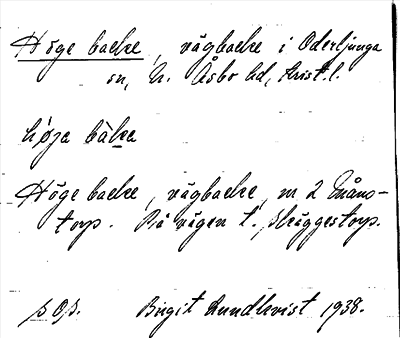 Höge backe, vägbacke i Oderljunga
sn, N. Åsbo hd, Krist. l.
höja bàka
Höge backe, vägbacke, m 2 Måns-
torp. På vägen t. Skäggestorp.
Birgit Lundkvist 1938.